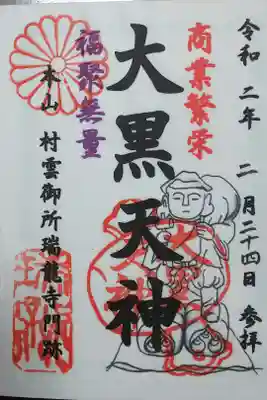 令和二年二月二十四日 参拝
商業繁栄
大黒天神
福聚無量
本山 村雲御所瑞龍寺門跡